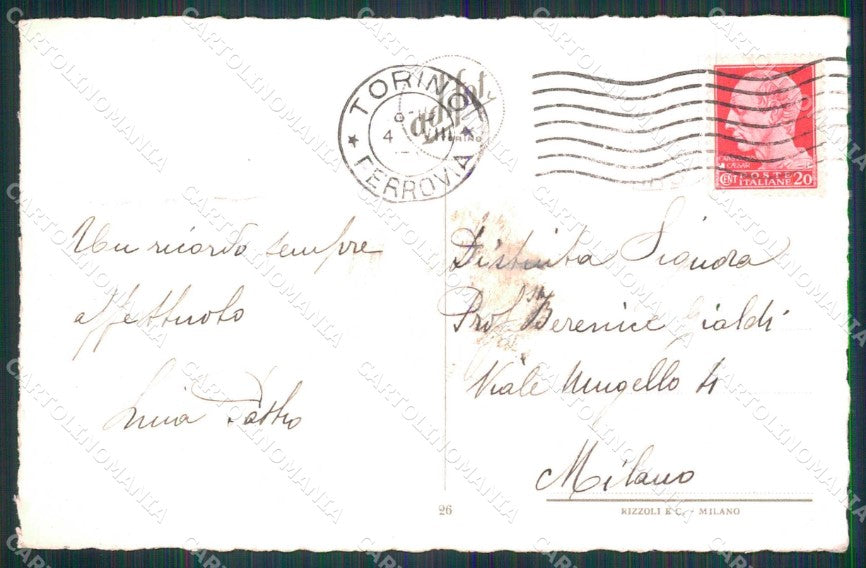 TORINO
FERROVIA
CENT POSTE ITALIANE 20
Un ricordo sempre
affettuoso
Distinta Signora
Prof. Berenice Gialdi
Viale Mugello 4
Milano
26
RIZZOLI E C. - MILANO
CARTOLINOMANIA